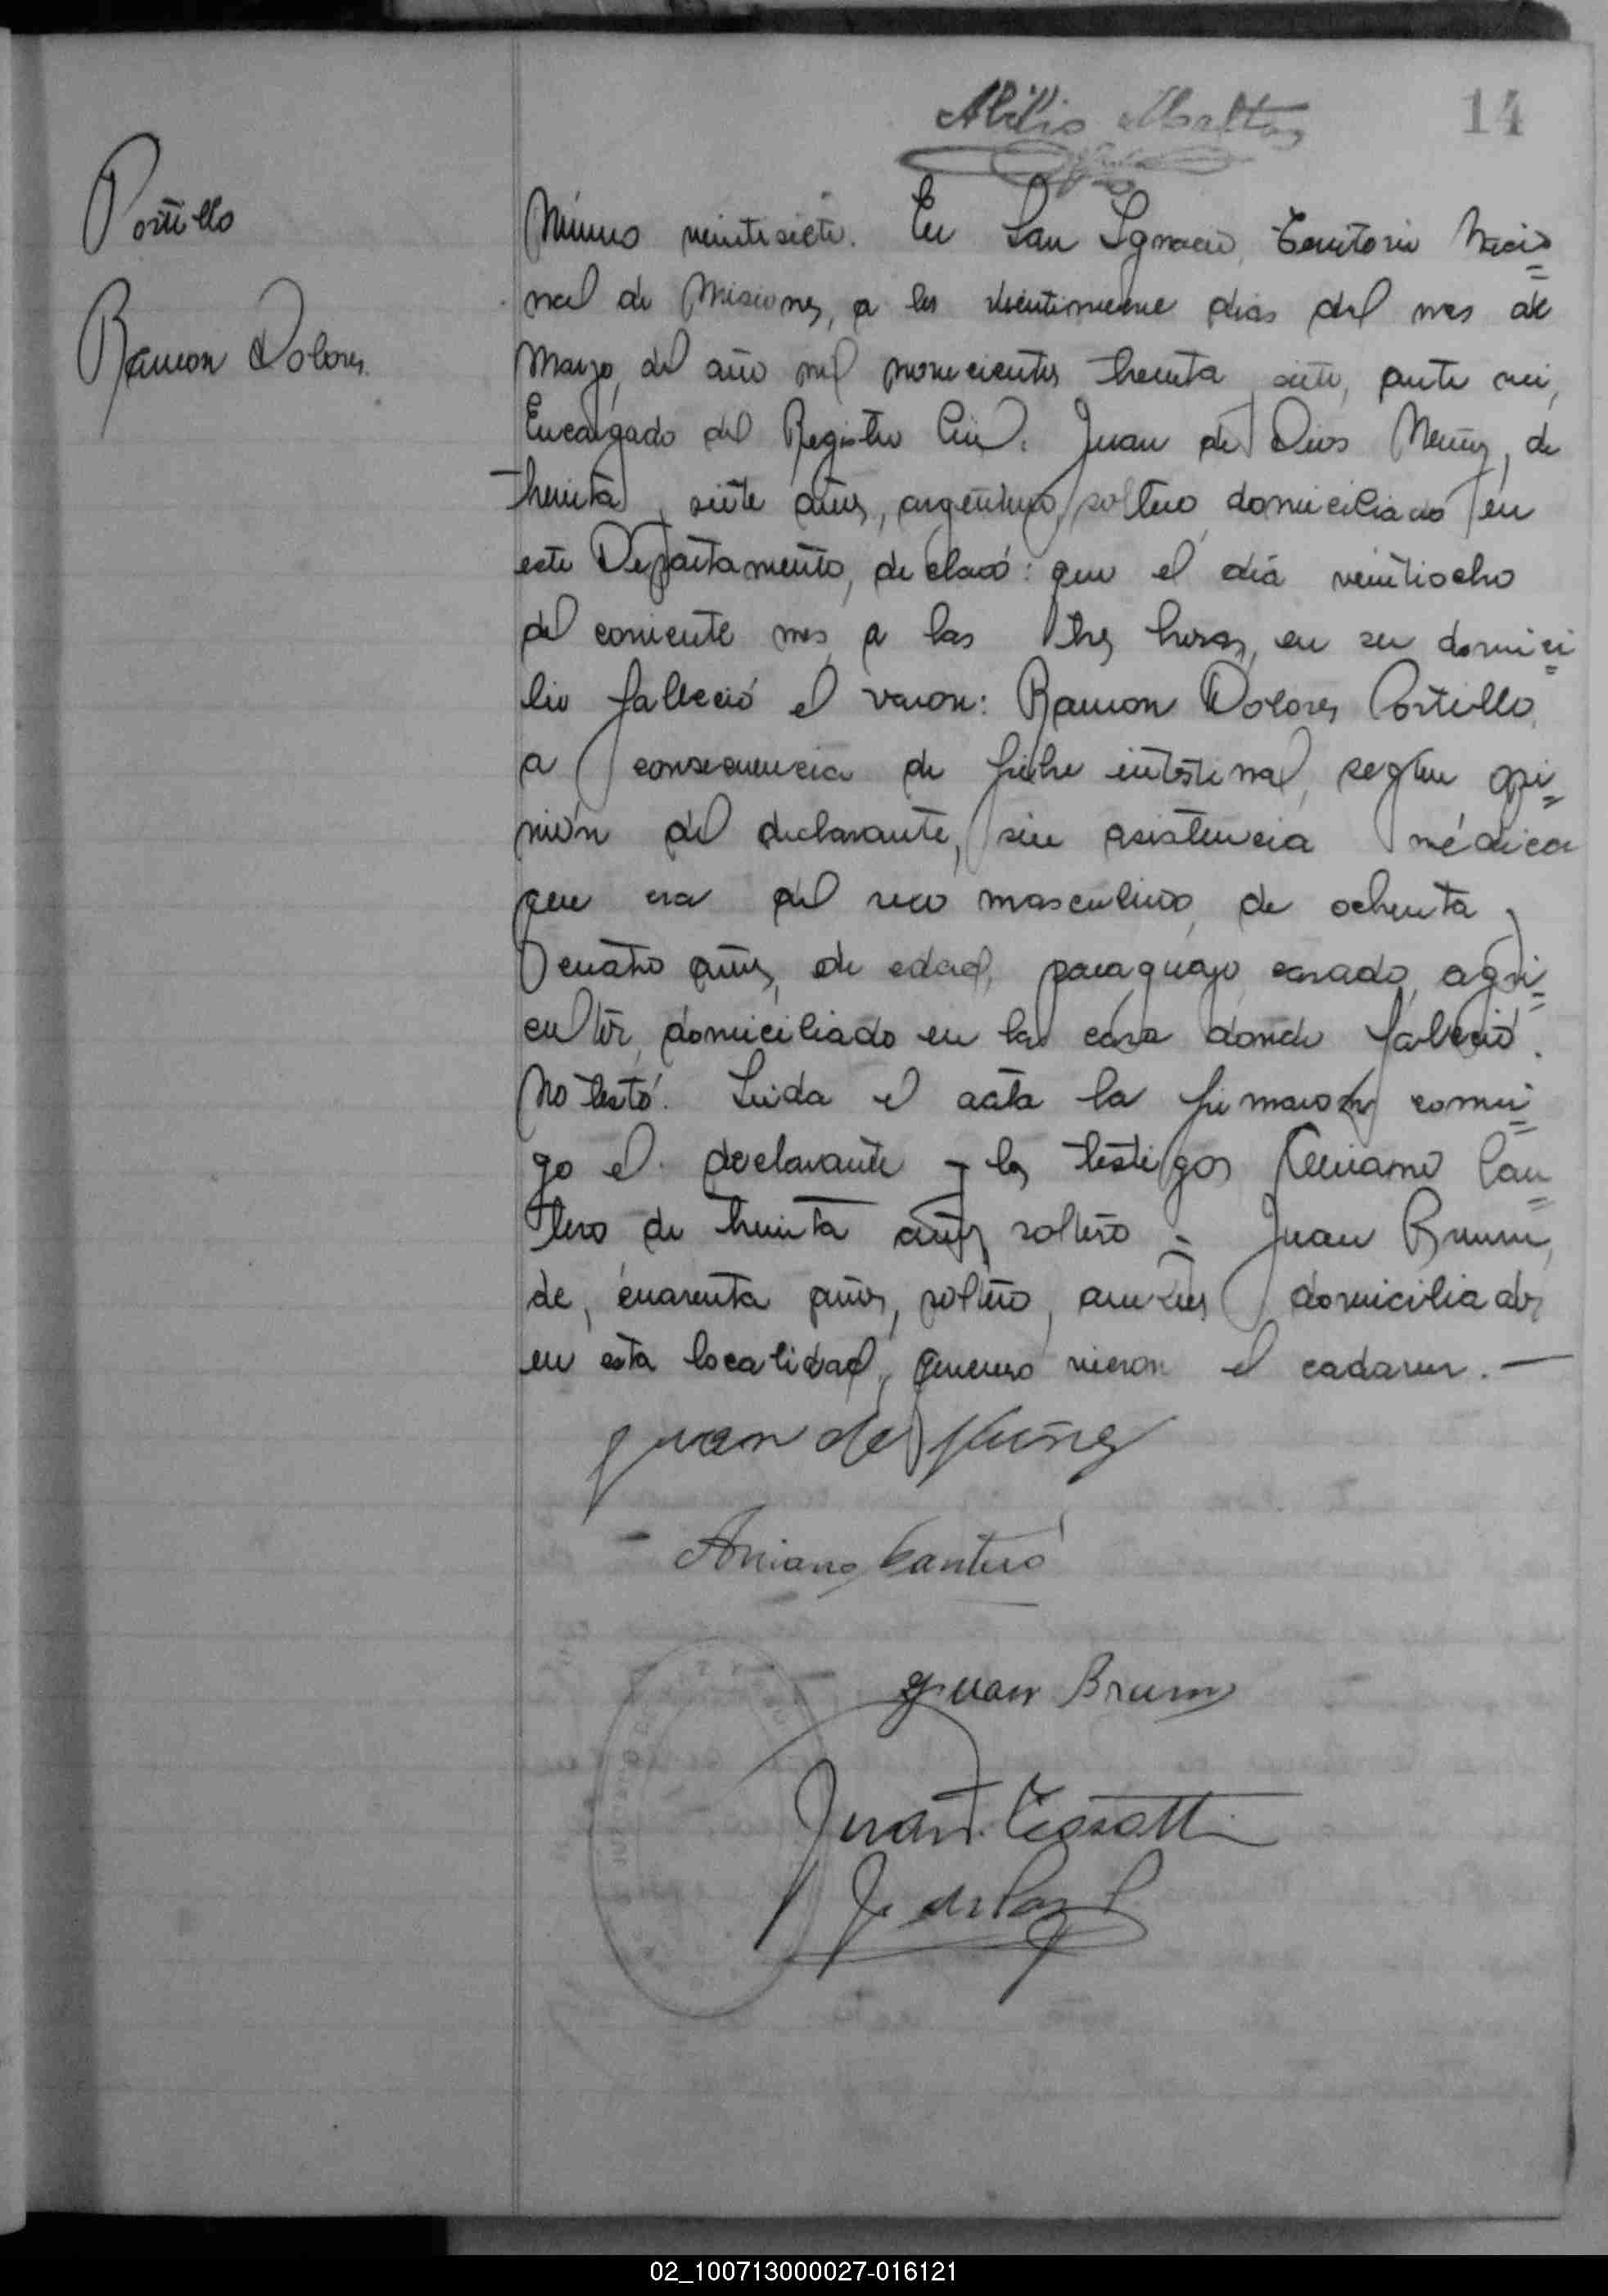 14
Portillo
Ramon Dolores.
Número veintisiete. En San Ignacio, Territorio Nacio=
nal de Misiones, a los veintinueve dias del mes de
Marzo, del año mil novecientos treinta y siete, ante mi,
Encargado del Registro Civil. Juan de Dios Nuñez, de
treinta y siete años, argentino, soltero, domiciliado en
este Departamento, declaró: que el día veintiocho
del corriente mes, a las tres horas, en su domici=
lio falleció el varon: Ramon Dolores Portillo,
a consecuencia de fiebre intestinal, según opi=
nión del declarante, sin asistencia médica
que era del sexo masculino, de ochenta y
cuatro años, de edad, paraguayo, casado, agri=
cultor, domiciliado en la casa donde falleció.
No testó. Leida el acta la firmaron conmi=
go el declarante y los testigos Aniano Can=
tero de treinta años, soltero y Juan Brum,
de, cuarenta años, soltero, ambos domiciliados
en esta localidad, quienes vieron el cadaver. —
Juan de D Nuñez
Aniano Cantero
Juan Brum
Juan
J. de Paz
02_100713000027-016121